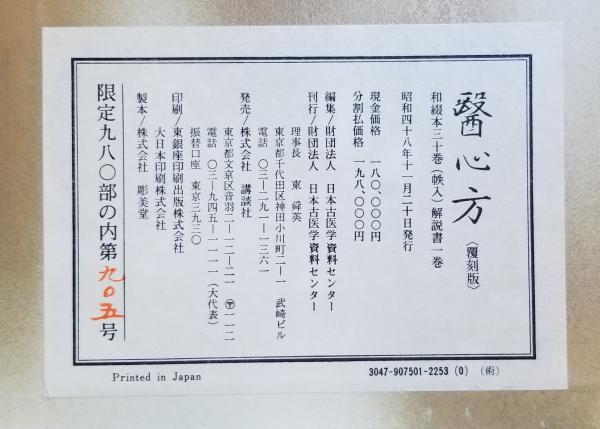 醫心方〈覆刻版〉
和綴本三十巻（帙入）解説書一巻
昭和四十八年十一月二十日発行
現金価格　一八〇、〇〇〇円
分割払価格　一九八、〇〇〇円
編集／財団法人　日本古医学資料センター
刊行／財団法人　日本古医学資料センター
理事長　東　舜英
東京都千代田区神田小川町二―一　武崎ビル
電話　〇三―二九一―一三六一
発売／株式会社　講談社
東京都文京区音羽二―一二―二一　〶一一二
電話　〇三―九四五―一一一一（大代表）
振替口座　東京三九三〇
印刷／東銀座印刷出版株式会社
大日本印刷株式会社
製本／株式会社　彫美堂
限定九八〇部の内第九〇五号
Printed in Japan
3047-907501-2253 (0) （術）